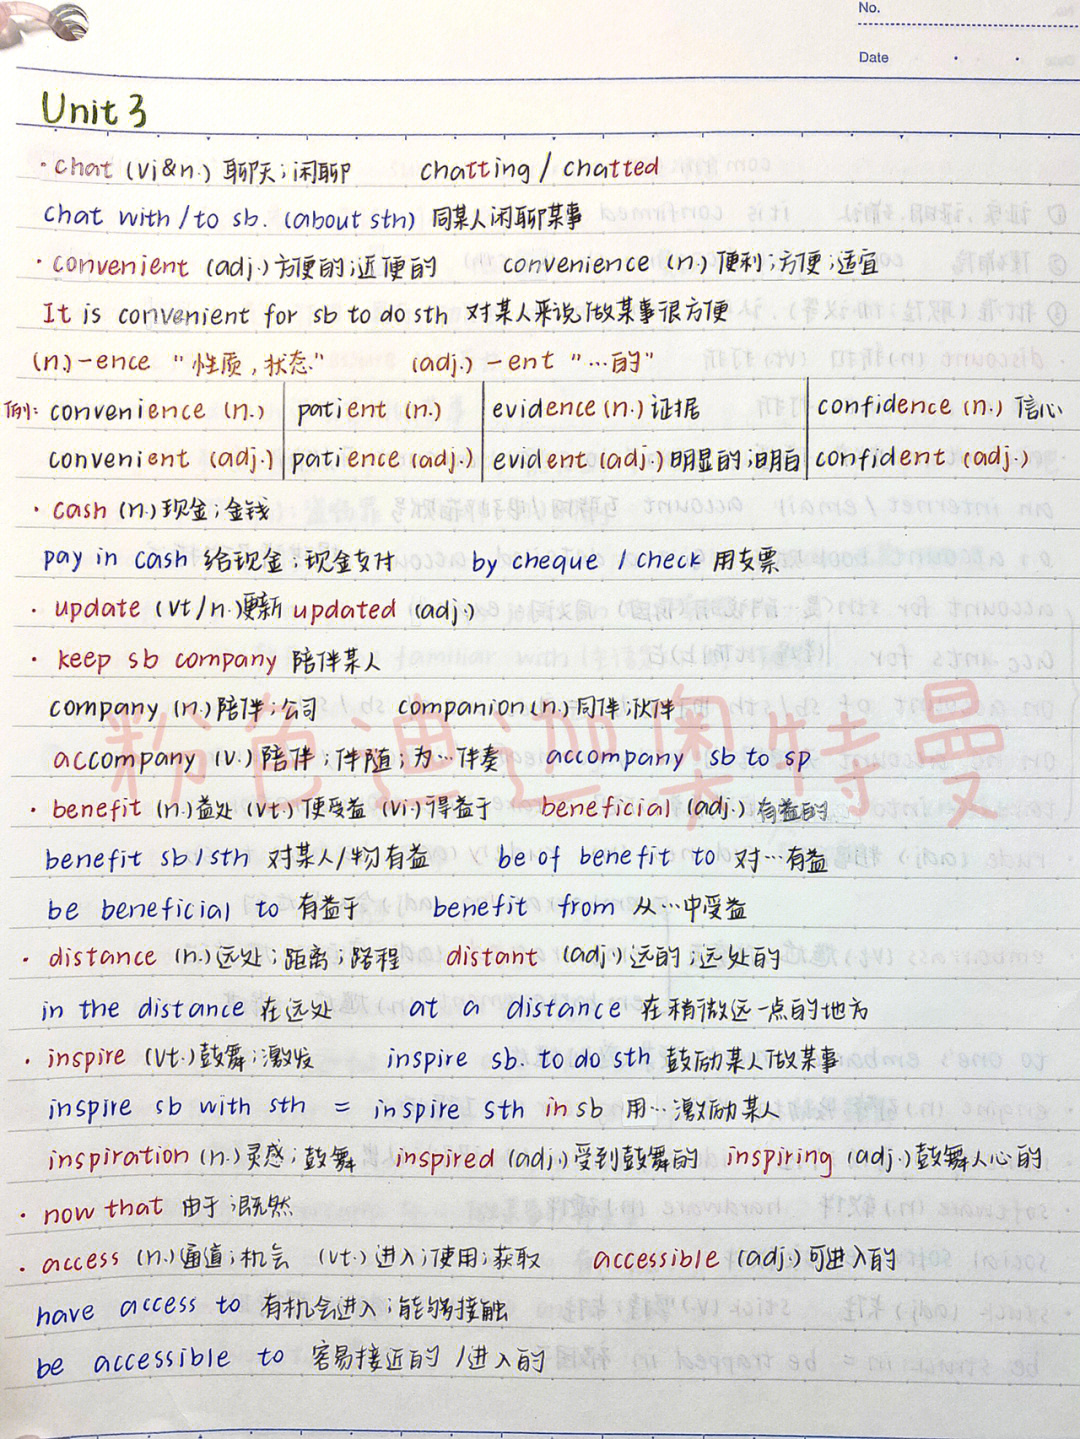 No.
Date
Unit 3
· chat (vi&n.) 聊天；闲聊 chatting / chatted
chat with / to sb. (about sth) 同某人闲聊某事
· convenient (adj.) 方便的；近便的 convenience (n.) 便利；方便；适宜
It is convenient for sb to do sth 对某人来说做某事很方便
(n.) -ence "性质，状态" (adj.) -ent "…的"
例: convenience (n.) patient (n.) evidence (n.) 证据 confidence (n.) 信心
convenient (adj.) patience (adj.) evident (adj.) 明显的；明白 confident (adj.)
· cash (n.) 现金；金钱
pay in cash 给现金；现金支付 by cheque / check 用支票
· update (vt/n.) 更新 updated (adj.)
· keep sb company 陪伴某人
company (n.) 陪伴；公司 companion (n.) 同伴；伙伴
accompany (v.) 陪伴；伴随；为…伴奏 accompany sb to sp
粉色迪迦奥特曼
· benefit (n.) 益处 (vt.) 使受益 (vi.) 得益于 beneficial (adj.) 有益的
benefit sb/sth 对某人/物有益 be of benefit to 对…有益
be beneficial to 有益于 benefit from 从…中受益
· distance (n.) 远处；距离；路程 distant (adj.) 远的；远处的
in the distance 在远处 at a distance 在稍微远一点的地方
· inspire (vt.) 鼓舞；激发 inspire sb. to do sth 鼓励某人做某事
inspire sb with sth = inspire sth in sb 用…激励某人
inspiration (n.) 灵感；鼓舞 inspired (adj.) 受到鼓舞的 inspiring (adj.) 鼓舞人心的
· now that 由于；既然
· access (n.) 通道；机会 (vt.) 进入；使用；获取 accessible (adj.) 可进入的
have access to 有机会进入；能够接触
be accessible to 容易接近的 / 进入的